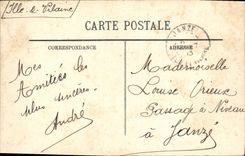 (Ille-&-Vilaine)
CARTE POSTALE
CORRESPONDANCE
ADRESSE
Mes
Amitiés les
plus sincères.
André
Mademoiselle
Louise Orieux
Passage à Niveau
à Janzé